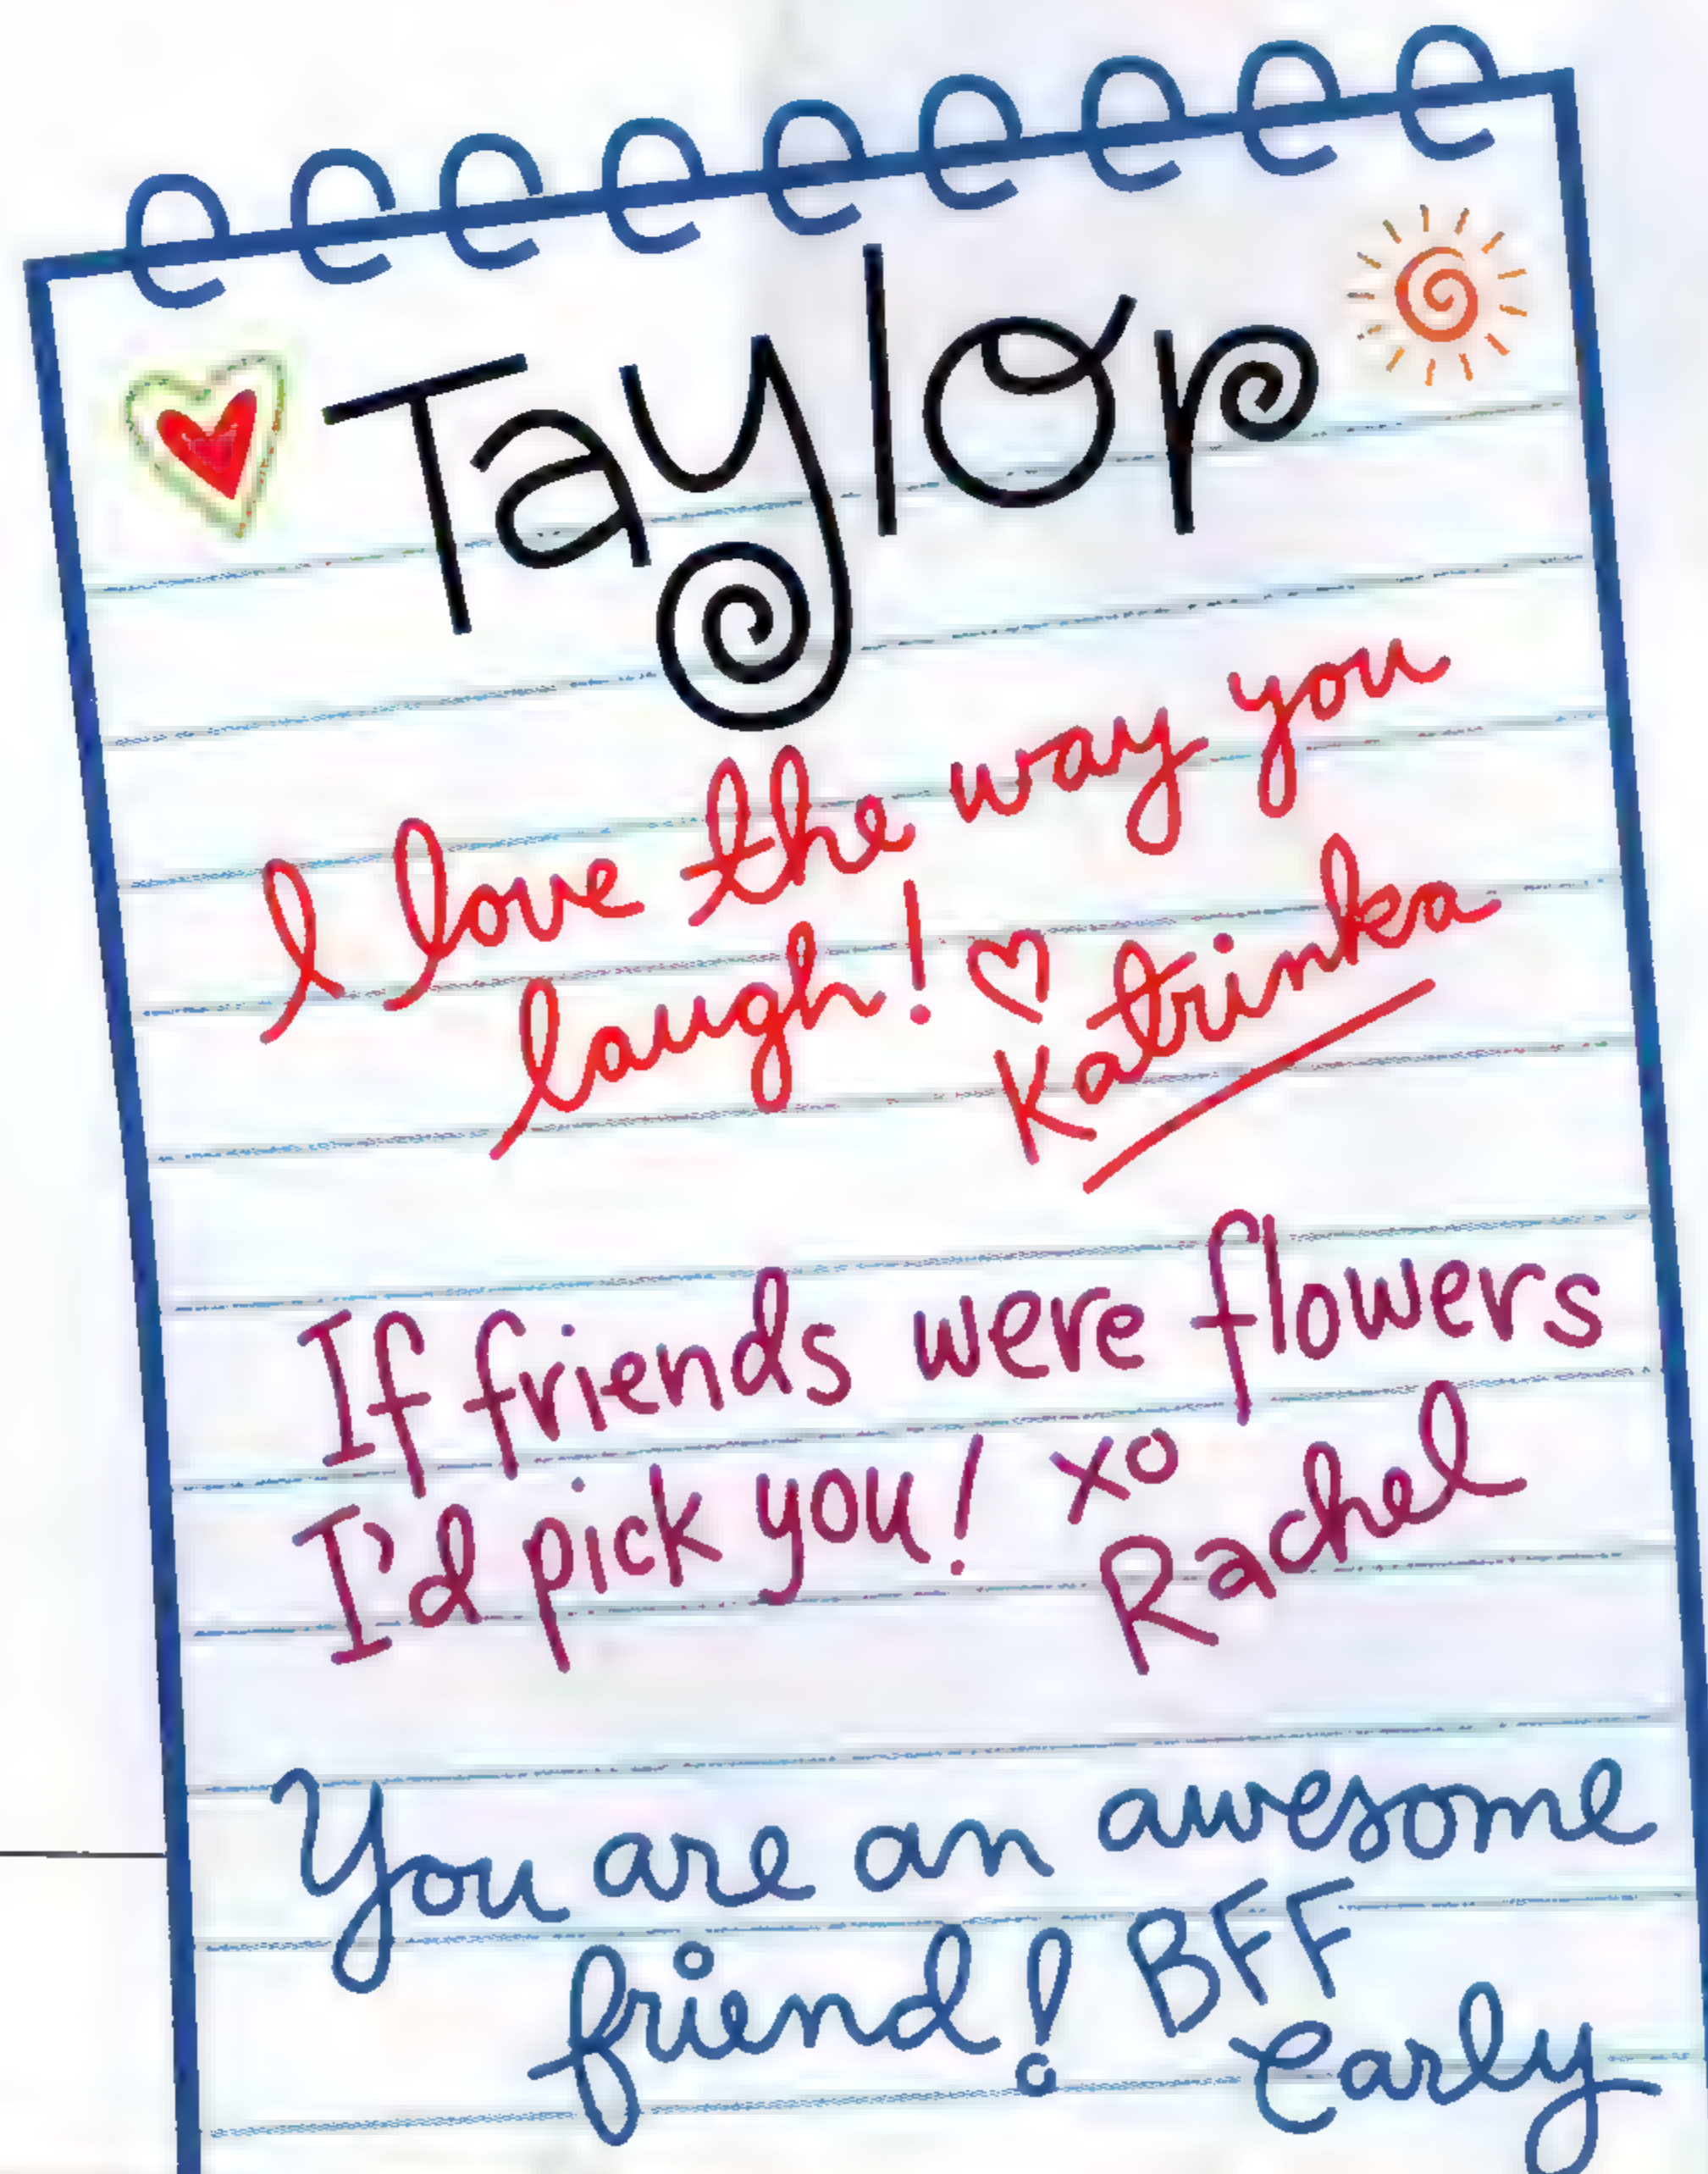 Taylor
I love the way you
laugh! ♡ Katrinka
If friends were flowers
I'd pick you! xo
Rachel
You are an awesome
friend! BFF
Carly